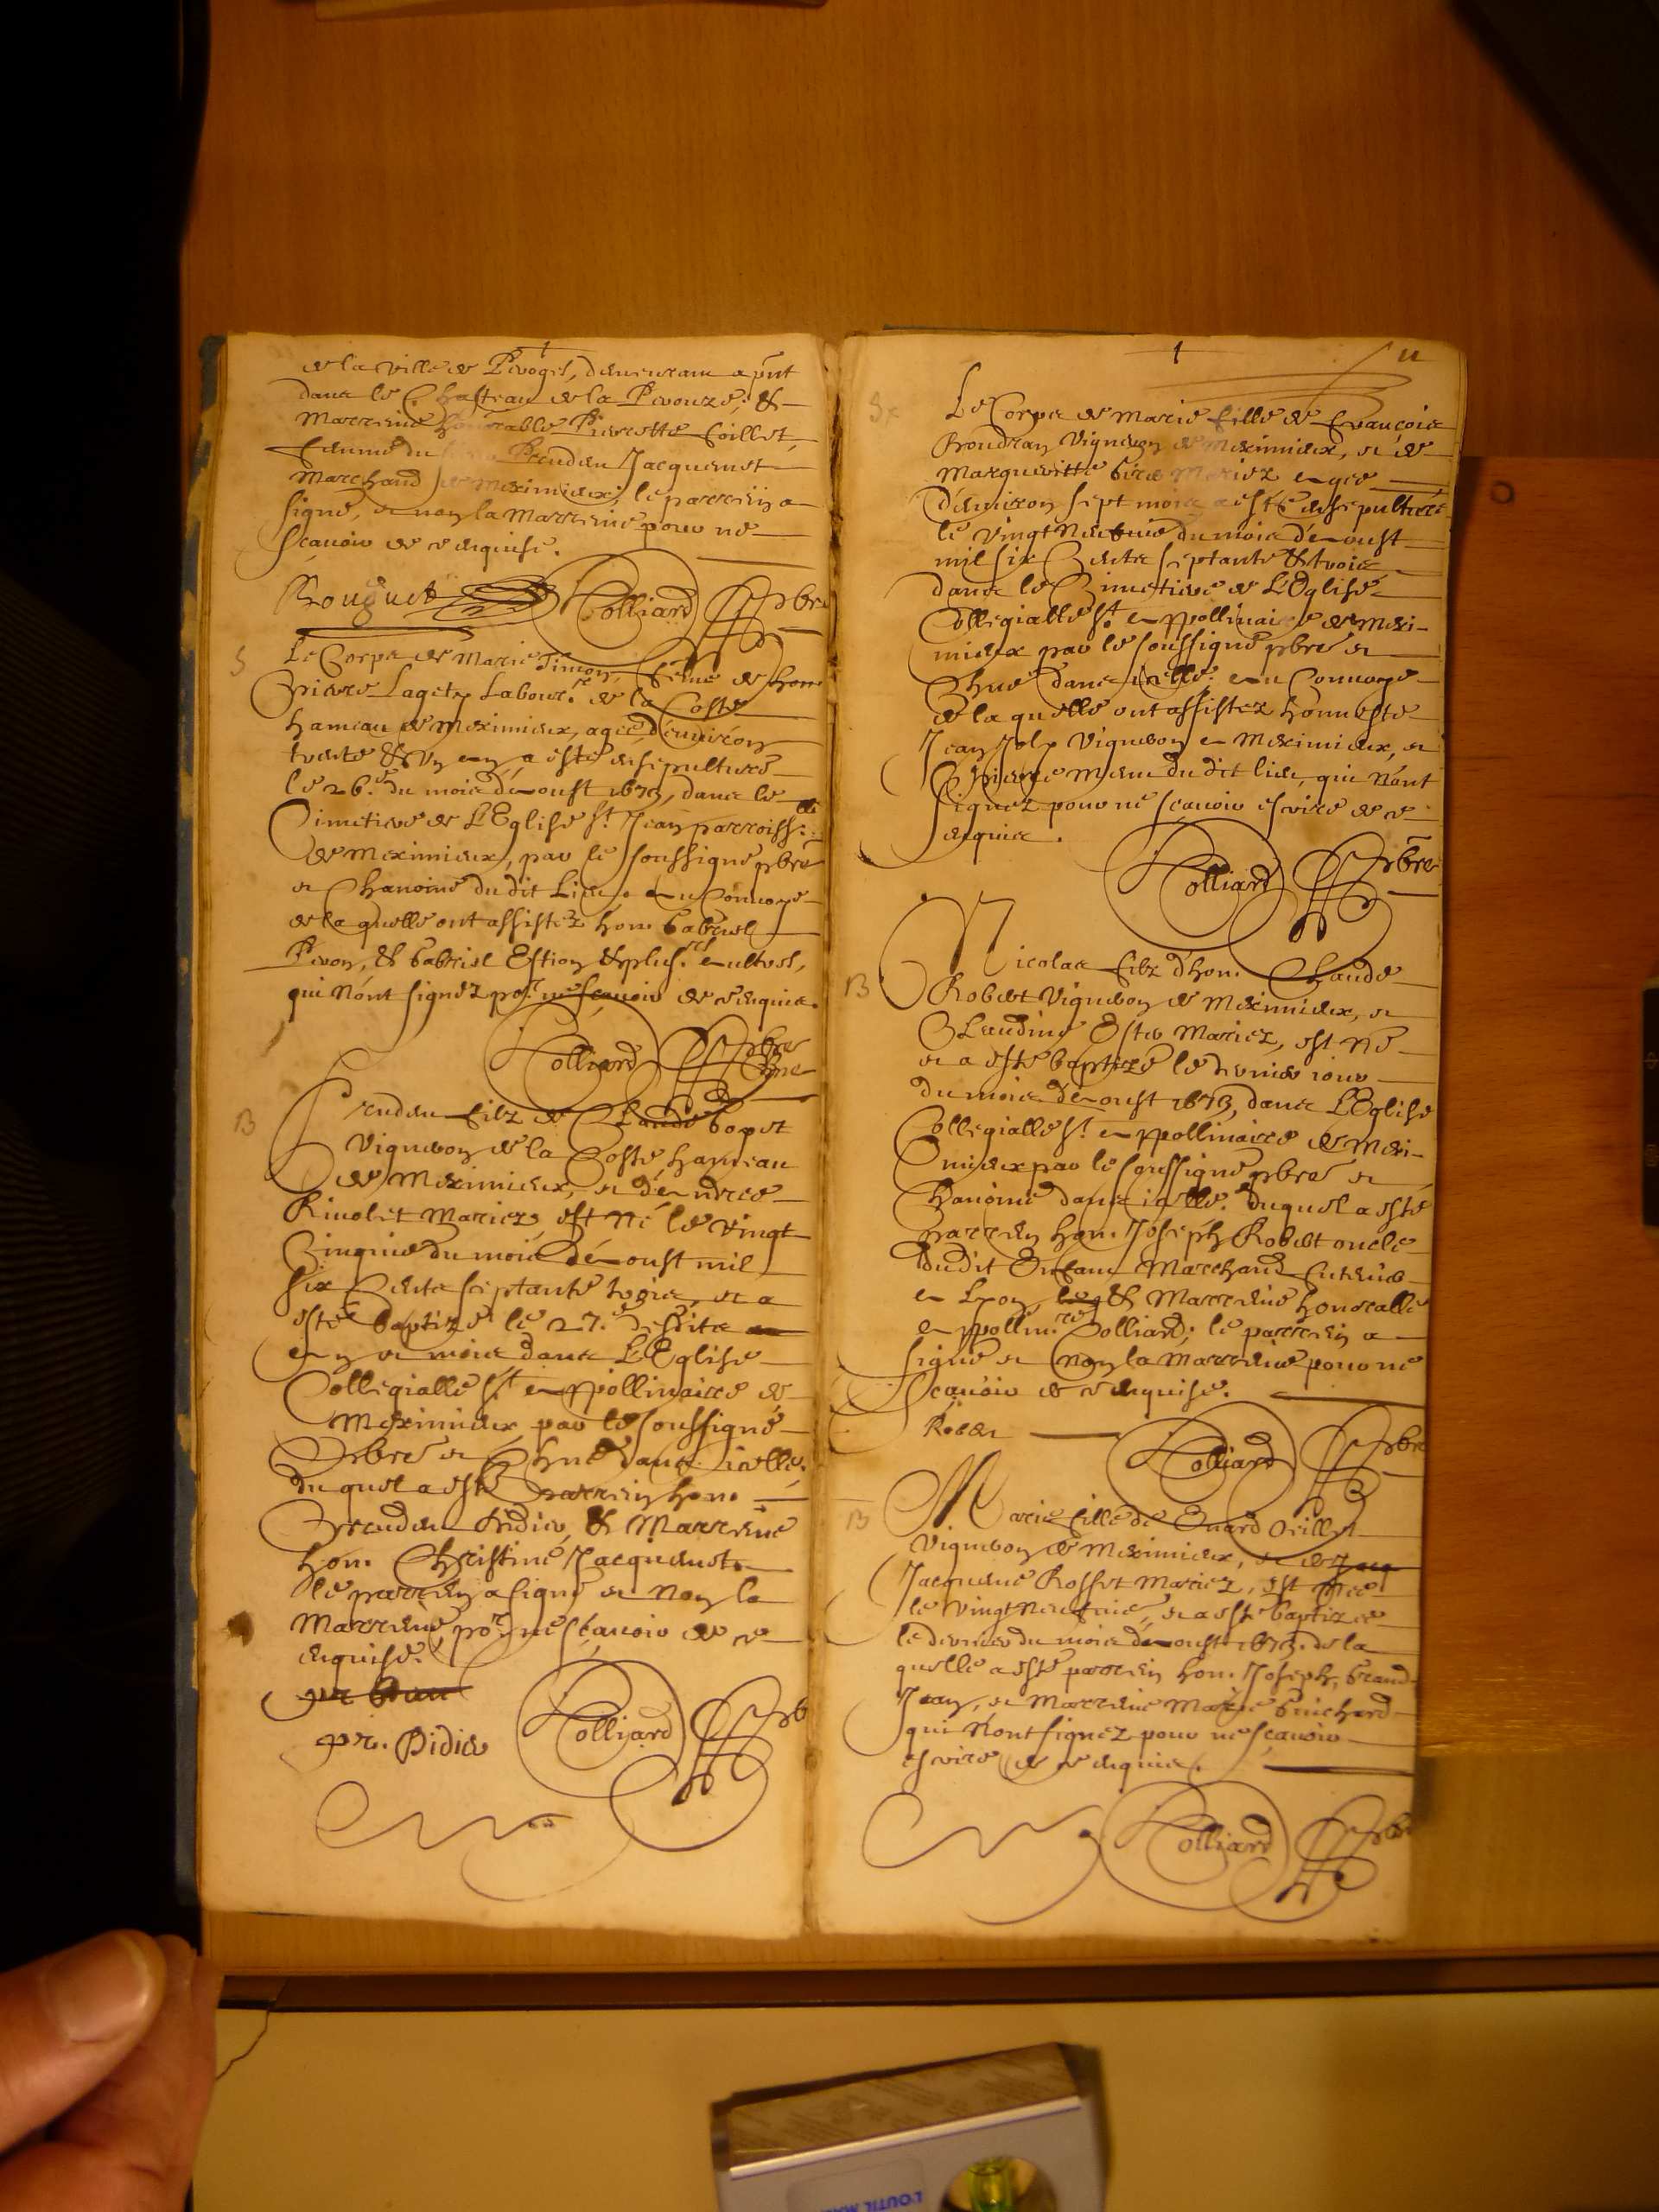 de la ville de Pivoges, demeurant a pñt
dans le Chasteau de la Pivouze; &
Marreine honorable Pierrette
femme du Prenden Jacquemet
Marchand de Meximieux; le parrein a
signé, et non la Marreine pour ne
sçavoir de ce enquise.
Bouquet Colliard pbre
S
Le Corps de Marie Timon, feme de hon.
Pierre Lagety Labour.r de la Coste
hameau de Meximieux, agée d'environ
trente & un an, a esté ensepulturé
le 26.e du mois d'Aoust 1673, dans le
Cimetiere de L'Eglise St. Jean parroiss.lle
de Meximieux, par le soussigné pbre
et Chanoine du dit Lieu. Au Convoye
de la quelle ont assistez hon. Gabriel
Pivon, & Gabriel Estion & plus.rs aultres,
qui n'ont signez po.r ne sçavoir de ce enquis.
Colliard pbre Chne
B
Prenden filz de Claude Bopet
Vigneron de la Coste hameau
de Meximieux, et d'Andrée
Rivolet Mariez, est né le vingt
Cinquie du mois d'Aoust mil
six Cents septante trois, et a
esté baptizé le 27.e desdits
an et mois dans L'Eglise
Collegialle St Appollinaire de
Meximieux par le soussigné
Pbre et Chne dans icelle.
du quel a esté parrein hon.
Prenden Didier, & Marreine
hon. Christine Jacquemet.
le parrein a signé et non la
Marreine, po.r ne sçavoir de ce
enquise.
pr. Didier Colliard pb
11
S
Le Corps de Marie fille de François
Boudran Vigneron de Meximieux, et de
Marguerite Mariez agée
d'environ sept mois a esté ensepulturé
le vingt Neufvie du mois d'Aoust
mil six Cents septante & trois
dans le Cimetiere de L'Eglise
Collegialle St. Appollinaire de Mexi-
mieux par le soussigné pbre et
Chne dans icelle. Au Convoye
de la quelle ont assistez honneste
Jean Joly Vigneron a Meximieux, et
Pierre du dit lieu, qui n'ont
signez pour ne sçavoir escrire de ce
enquis.
Colliard pbre
B
Nicolas filz d'hon. Claude
Robert Vigneron de Meximieux, et
Claudine Mariez, est né
et a esté baptizé le dernier iour
du mois d'Aoust 1673, dans L'Eglise
Collegialle St. Appollinaire de Mexi-
mieux par le soussigné pbre et
Chanoine dans icelle. duquel a esté
parrein hon. Joseph Robert oncle
dudit Enfant Marchand
a Lyon, & Marreine honoralle
Appollin.re Colliard; le parrein a
signé et non la Marreine pour ne
sçavoir de ce enquise.
Rober Colliard pbre
B
Marie fille de
Vigneron de Meximieux, et de Jaeq
Jacquene Rosset Mariez, est née
le vingt Neufvie, et a esté baptizée
le dernier du mois d'Aoust 1673. de la
quelle a esté parrein hon. Joseph Grand-
Jean, et Marreine Marie Guichard
qui n'ont signez pour ne sçavoir
escrire de ce enquis.
Colliard pbre
L'OUTIL